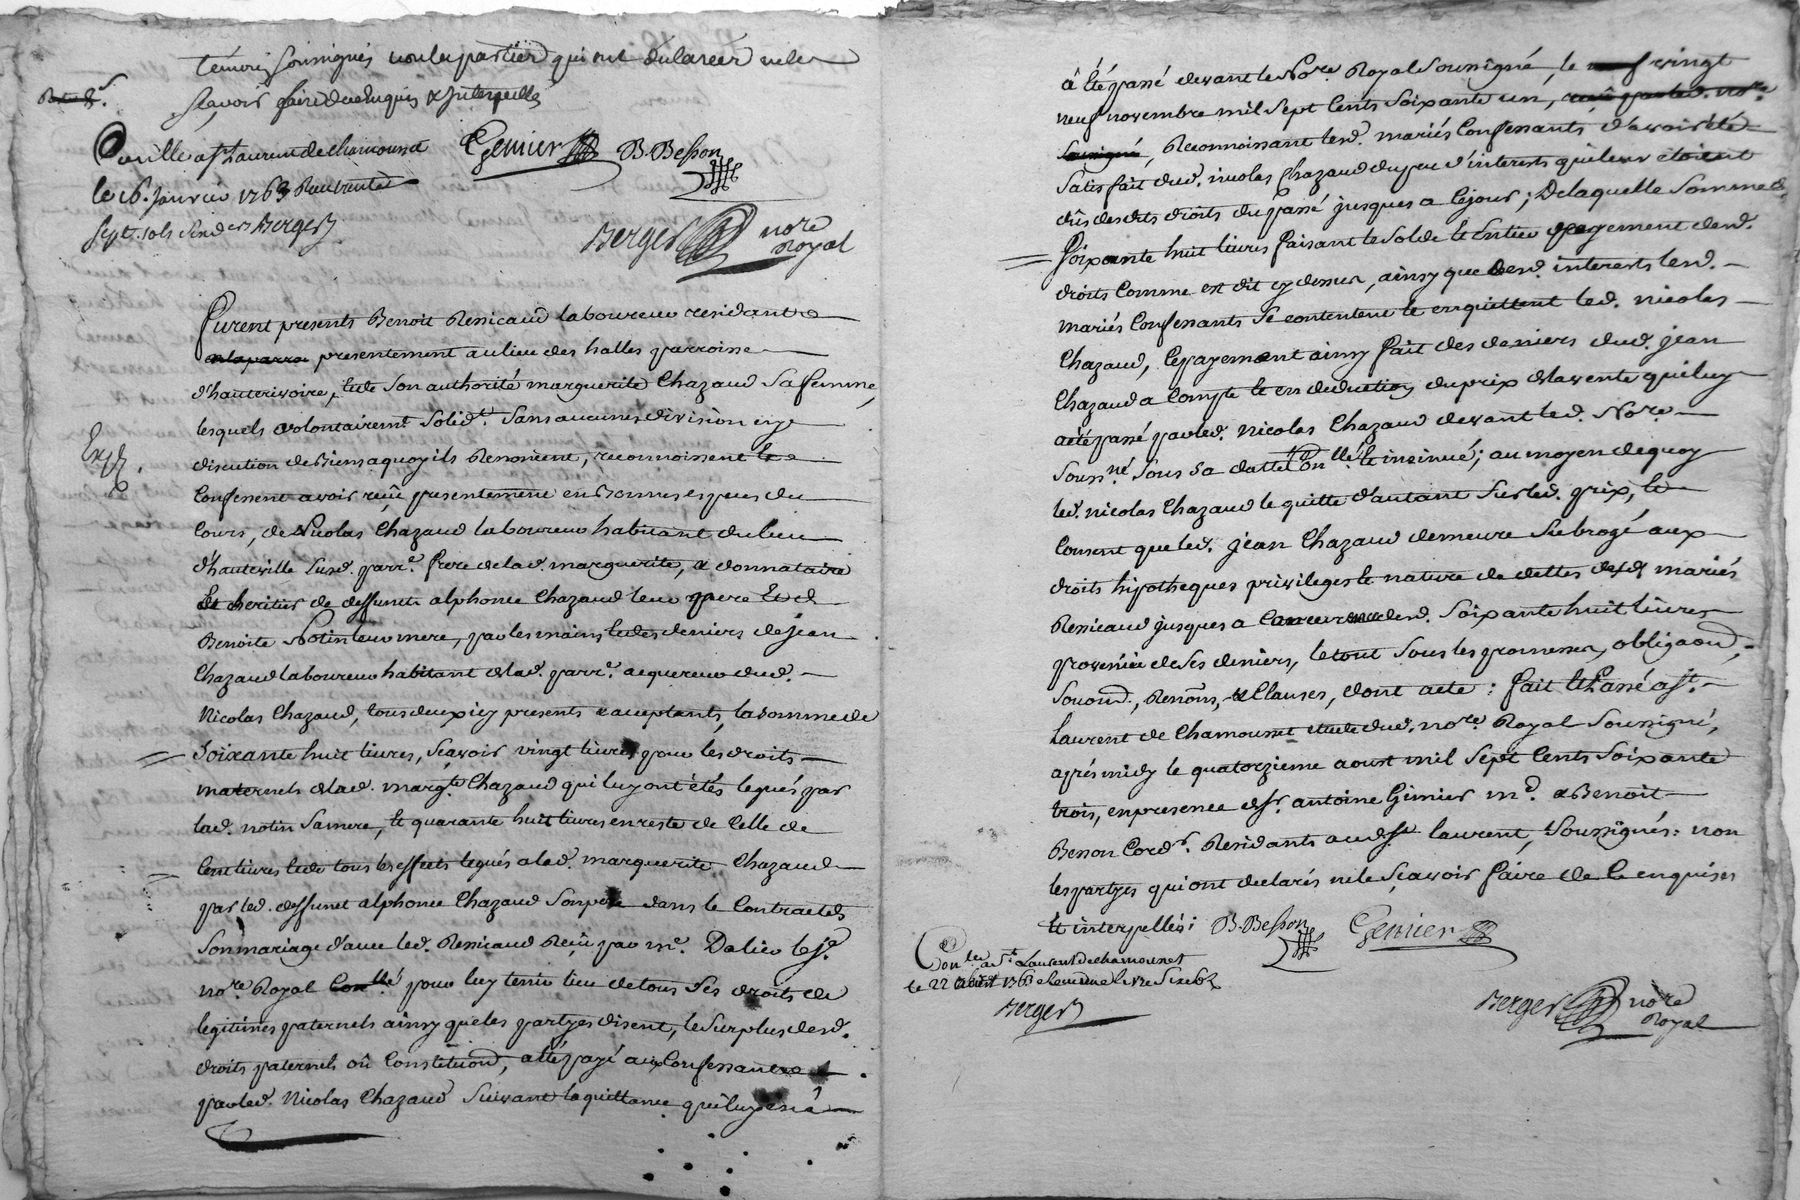 témoins soussignés non les parties qui ont déclarées ne le
sçavoir faire de ce enquis & interpellés
Conllé a St Laurent de chamousset
le 16. Janvier 1763
sept sols six ders Berger
Gemier B. Besson
Berger nore Royal
Furent presents Benoit Ressicaud laboureur residant
presentement au lieu des halles parroisse
d'hauterivoire, et de son authorité marguerite Chazaud sa femme,
lesquels volontairemt. solidt. sans aucunes division ny
discution de biens a quoy ils Renoncent, reconnoissent et
Confessent avoir reçû presentement en bonnes especes du
Cours, de Nicolas Chazaud laboureur habitant du lieu
d'hauteville susd. parre. frere de lad. marguerite, & donnataire
et heritier de deffunct alphonce Chazaud leur pere et d
Benoite Notin leur mere, par les mains et des deniers de jean
Chazaud laboureur habitant de lad. parre. acquereur dud.
Nicolas Chazaud, tous deux icy presents & acceptants, la somme de
Soixante huit livres, sçavoir vingt livres pour les droits
maternels de lad. margte. Chazaud qui luy ont étés legués par
lad. notin sa mere, et quarante huit livres en reste de Celle de
Cent livres et de tous les effects legués a lad. marguerite Chazaud
par led. deffunct alphonce Chazaud son pere dans le Contract de
son mariage d'avec led. Ressicaud Reçû par me. Dalier le je.
nore. Royal Conllé pour luy tenir lieu de tous ses droits de
legitimes paternels ainsy que les partyes disent, le surplus desd.
droits paternels où Constitûond, a été payé aux Confessants
par led. Nicolas Chazaud suivant la quittance qui luy en a
à été passé devant le Nore. Royal soussigné, le vingt
neuf novembre mil sept cents soixante un,
soussigné, Reconnoissant lesd. mariés Confessants d'avoir été
satisfait dud. nicolas Chazaud du peu d'interests qui leur étoient
dûs desdits droits du passé jusques a ce jour; De laquelle somme de
soixante huit livres faisant le solde et entier payement desd.
droits Comme est dit cy dessus, ainsy que desd. interests lesd.
mariés Confessants se contentent et en quittent led. nicolas
Chazaud, le payement ainsy fait des deniers dud. jean
Chazaud a Compte et en deduction du prix de la vente qui luy
a été passé par led. Nicolas Chazaud devant led. Nore.
Soussné. sous sa datte Conllé. et insinué; au moyen de quoy
led. nicolas Chazaud le quitte d'autant sur led. prix, et
Consent que led. jean Chazaud demeure subrogé aux
droits hipotheques privileges et nature de dettes desd. mariés
Ressicaud jusques a Concurrance desd. soixante huit livres
provenüe de ses deniers, le tout sous les promesses, obligaond,
soûond, Renons, & Clauses, dont acte: fait et Passé a st.
Laurent de Chamousset etude dud. nore Royal soussigné,
aprés midy le quatorzieme aoust mil sept Cents soixante
trois, en presence de sr. antoine Gimier md. & Benoit
Besson Cordr. Residants aud. st. laurent, soussignés: non
les partyes qui ont declarés ne le sçavoir faire de ce enquises
et interpellés:
B. Besson Gemier
Conllé a St. Laurent de chamousset
le 22 aoust 1763
Berger
Berger nore Royal